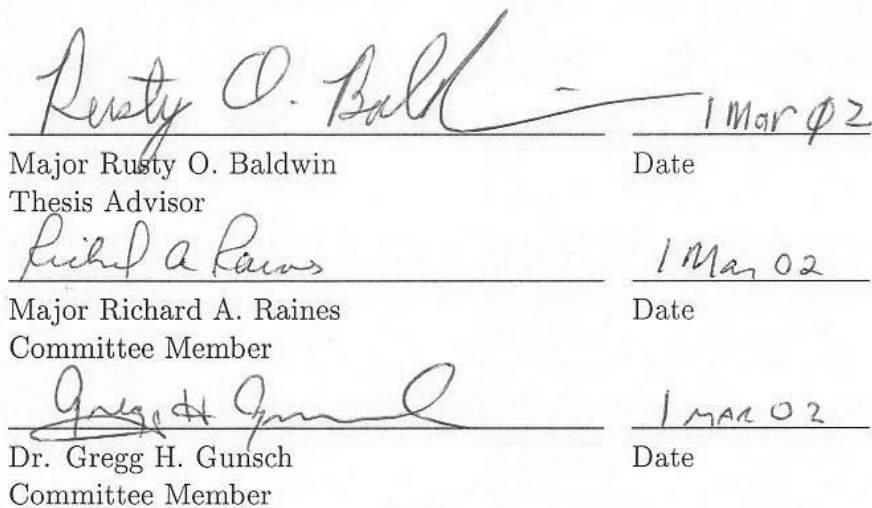 Rusty O. Baldwin 1 Mar 02
Major Rusty O. Baldwin Date
Thesis Advisor
Richard A Raines 1 Mar 02
Major Richard A. Raines Date
Committee Member
Gregg H Gunsch 1 MAR 02
Dr. Gregg H. Gunsch Date
Committee Member